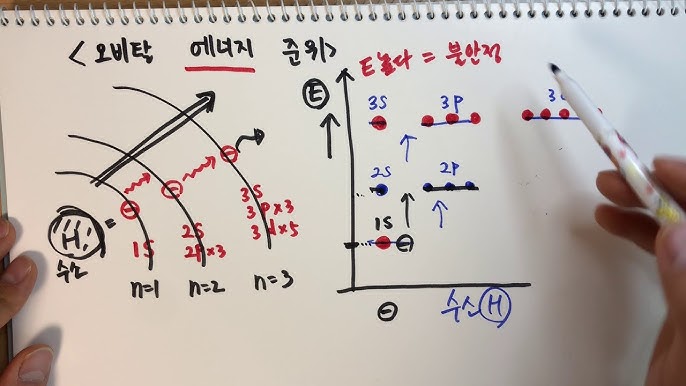 < 오비탈 에너지 준위>
E높다 = 불안정
E
3S 3P
2S 2P
1S
H
수소
=
1S
2S
2P×3
3S
3P×3
3d×5
n=1 n=2 n=3
수소 H